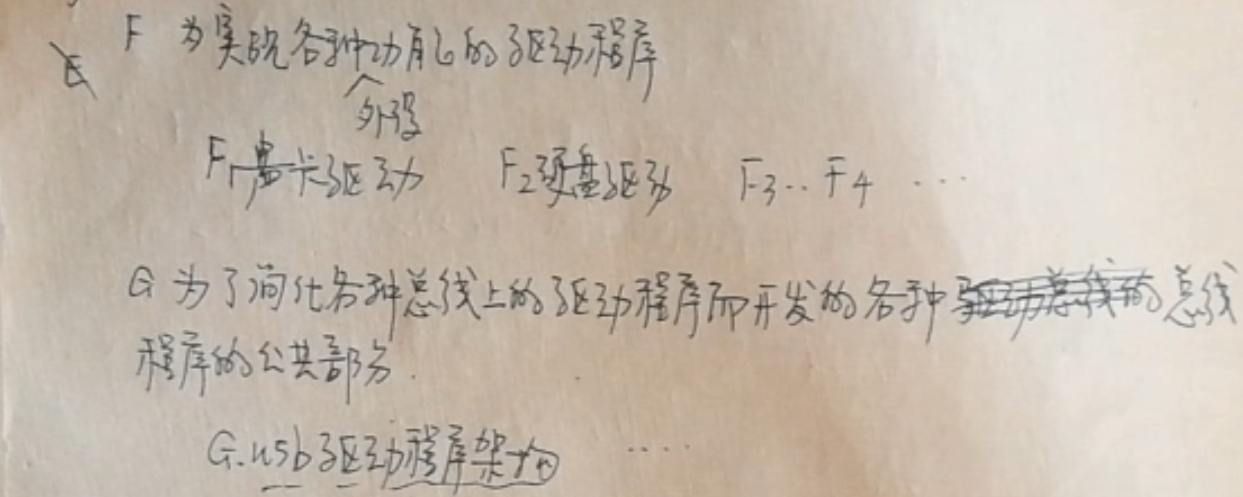 F 为实现各种外设功能的驱动程序
E
F1 声卡驱动 F2硬盘驱动 F3.. F4 ...
G 为了简化各种总线上的驱动程序而开发的各种总线
程序的公共部分.
G.usb驱动程序架构 ....